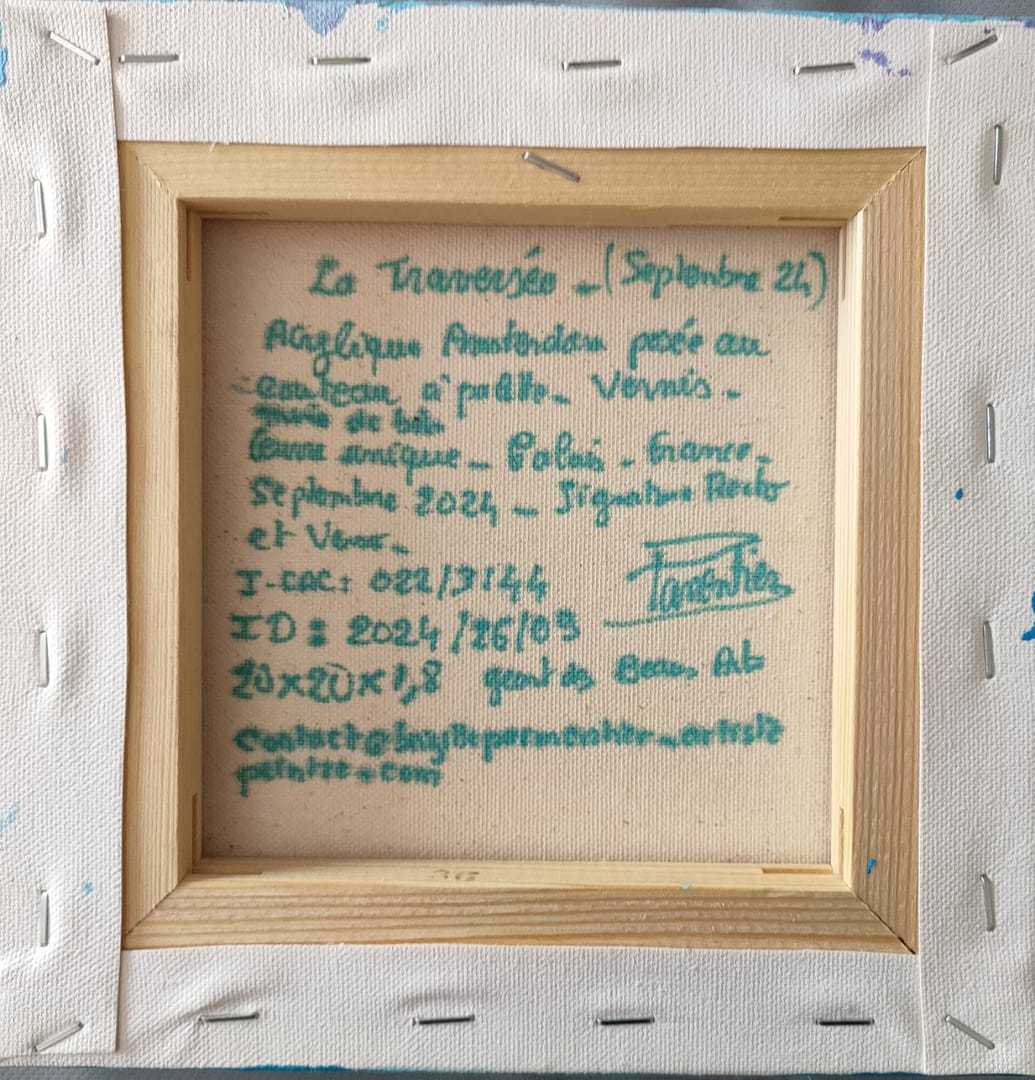 La Traversée - (Septembre 24)
Acrylique Amsterdam posée au
couteau à palette - Vernis -
Œuvre unique - Palais - France -
Septembre 2024 - Signature Recto
et Verso -
I-CAC: 022/3144
Parmentier
ID : 2024/26/09
20x20x1,8 géant des Beaux Arts
contact@brigitteparmentier-artiste
peintre.com
36